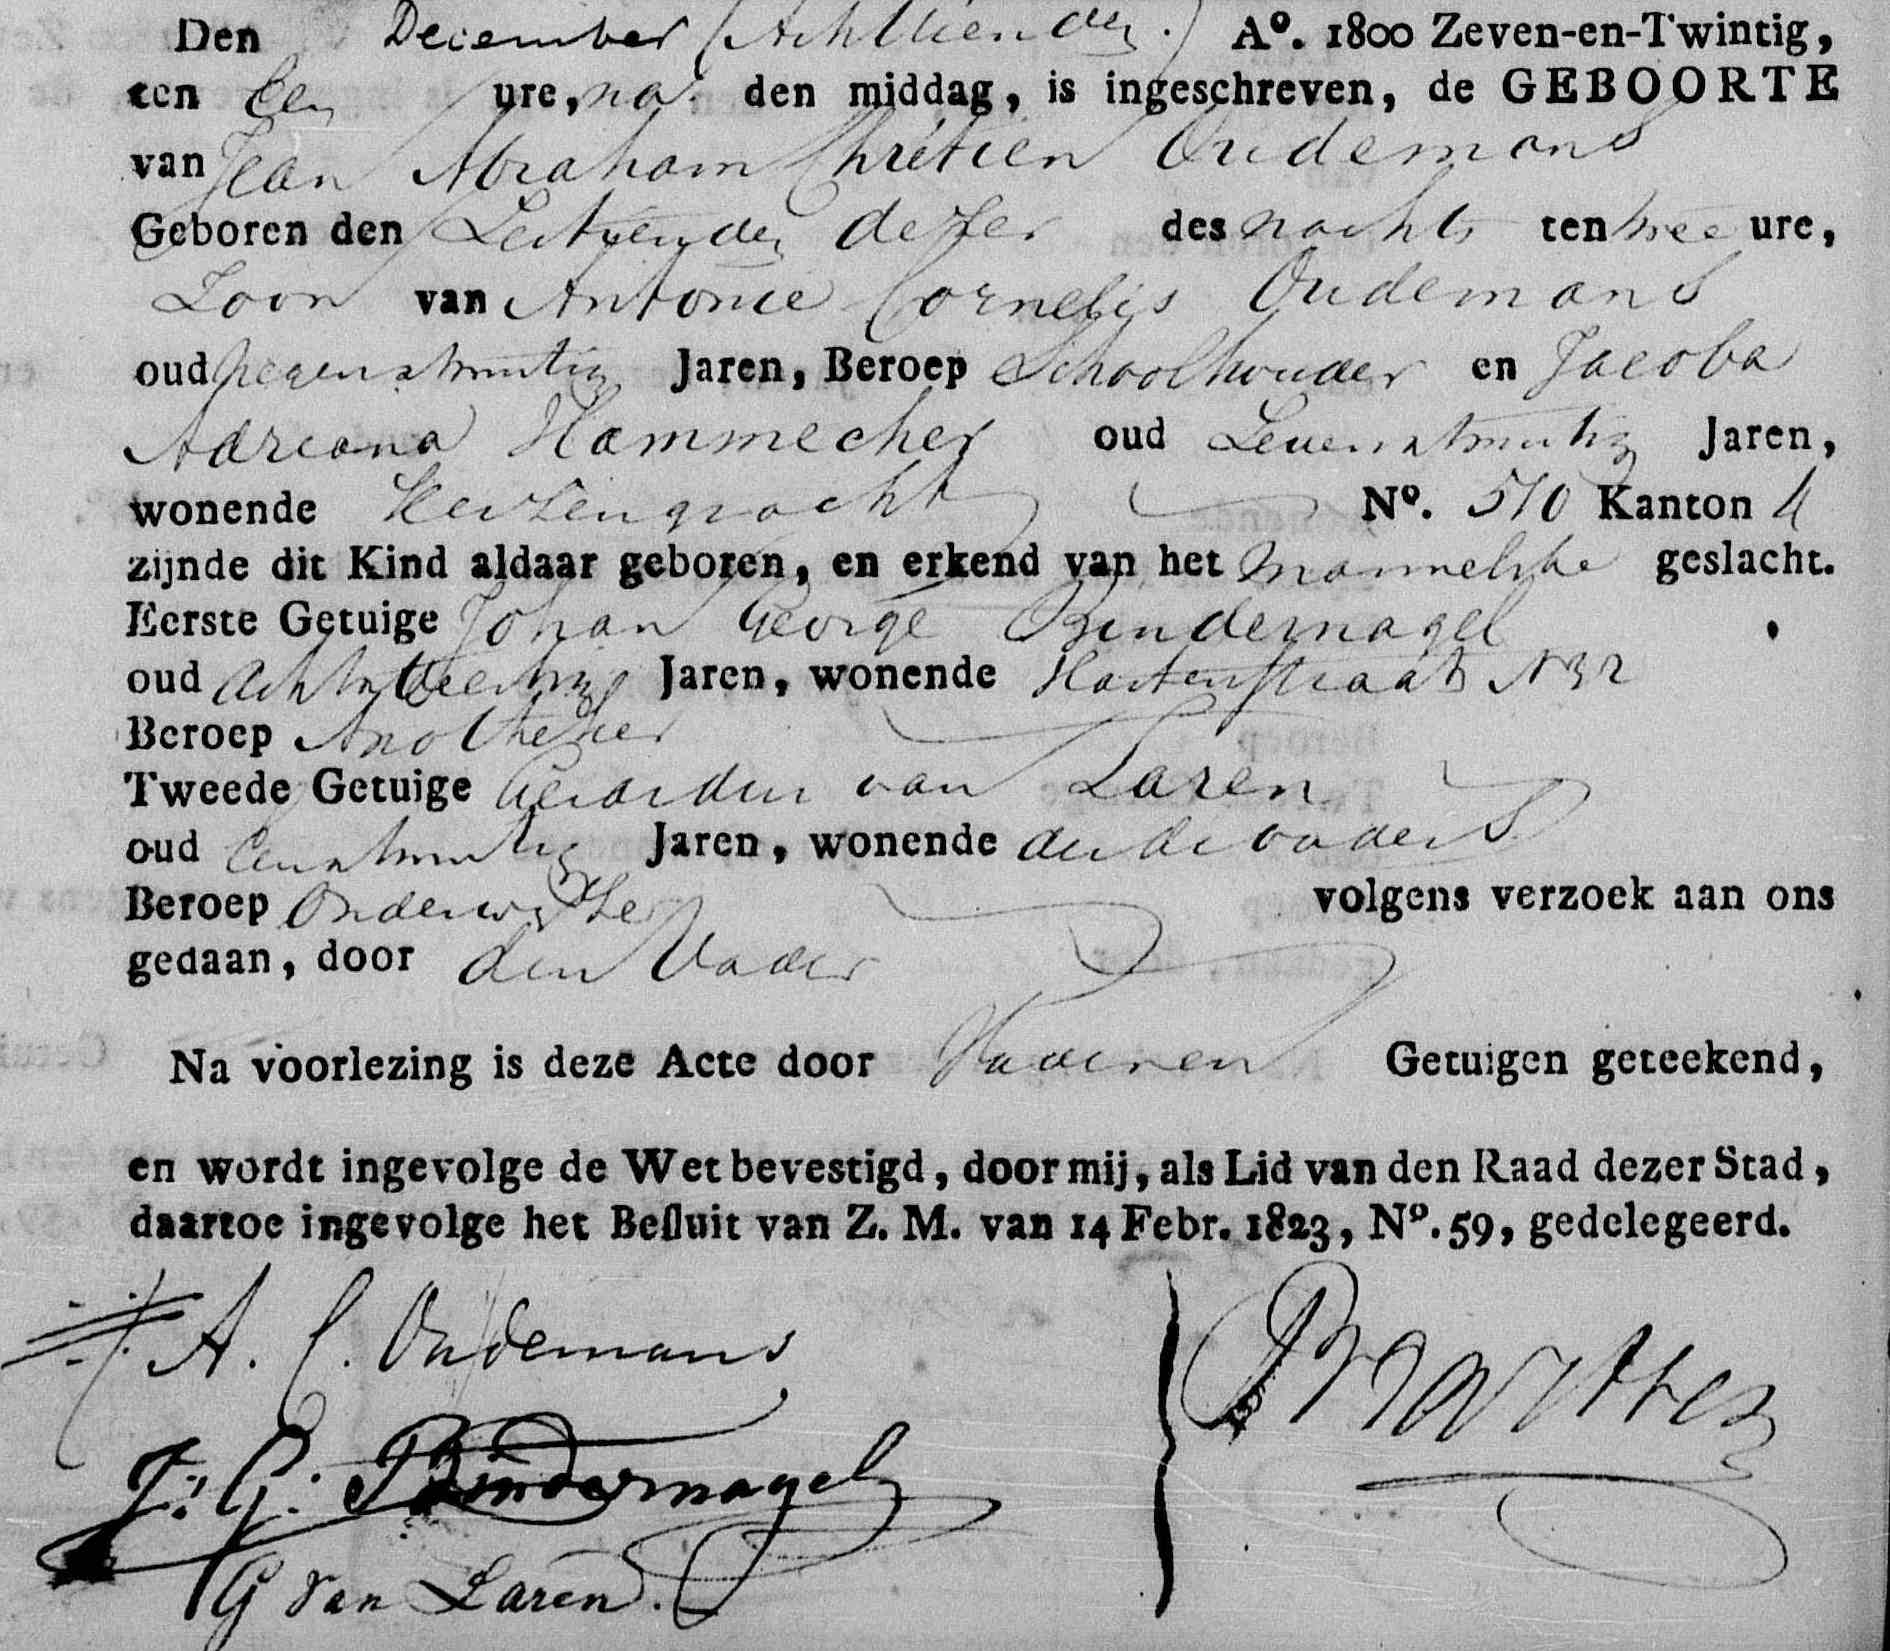 Den December (Achttienden.) Aº. 1800 Zeven-en-Twintig,
ten Een ure, na den middag, is ingeschreven, de GEBOORTE
van Jean Abraham Chrétien Oudemans
Geboren den Zestienden dezer des nachts ten twee ure,
Zoon van Antonie Cornelis Oudemans
oud negenentwintig Jaren, Beroep Schoolhouder en Jacoba
Adriana Hammecher oud Zevenentwintig Jaren,
wonende Keizengracht Nº. 510 Kanton 4
zijnde dit Kind aldaar geboren, en erkend van het mannelijke geslacht.
Eerste Getuige Johan George Bindernagel
oud Jaren, wonende Hartenstraat N 32
Beroep Apotheker
Tweede Getuige Gerardus van Laren
oud Eenentwintig Jaren, wonende als de vaders
Beroep Onderwijzer volgens verzoek aan ons
gedaan, door den Vader
Na voorlezing is deze Acte door Vader en Getuigen geteekend,
en wordt ingevolge de Wet bevestigd, door mij, als Lid van den Raad dezer Stad,
daartoe ingevolge het Besluit van Z. M. van 14 Febr. 1823, Nº. 59, gedelegeerd.
A. C. Oudemans
J: G: Bindernagel
G van Laren.